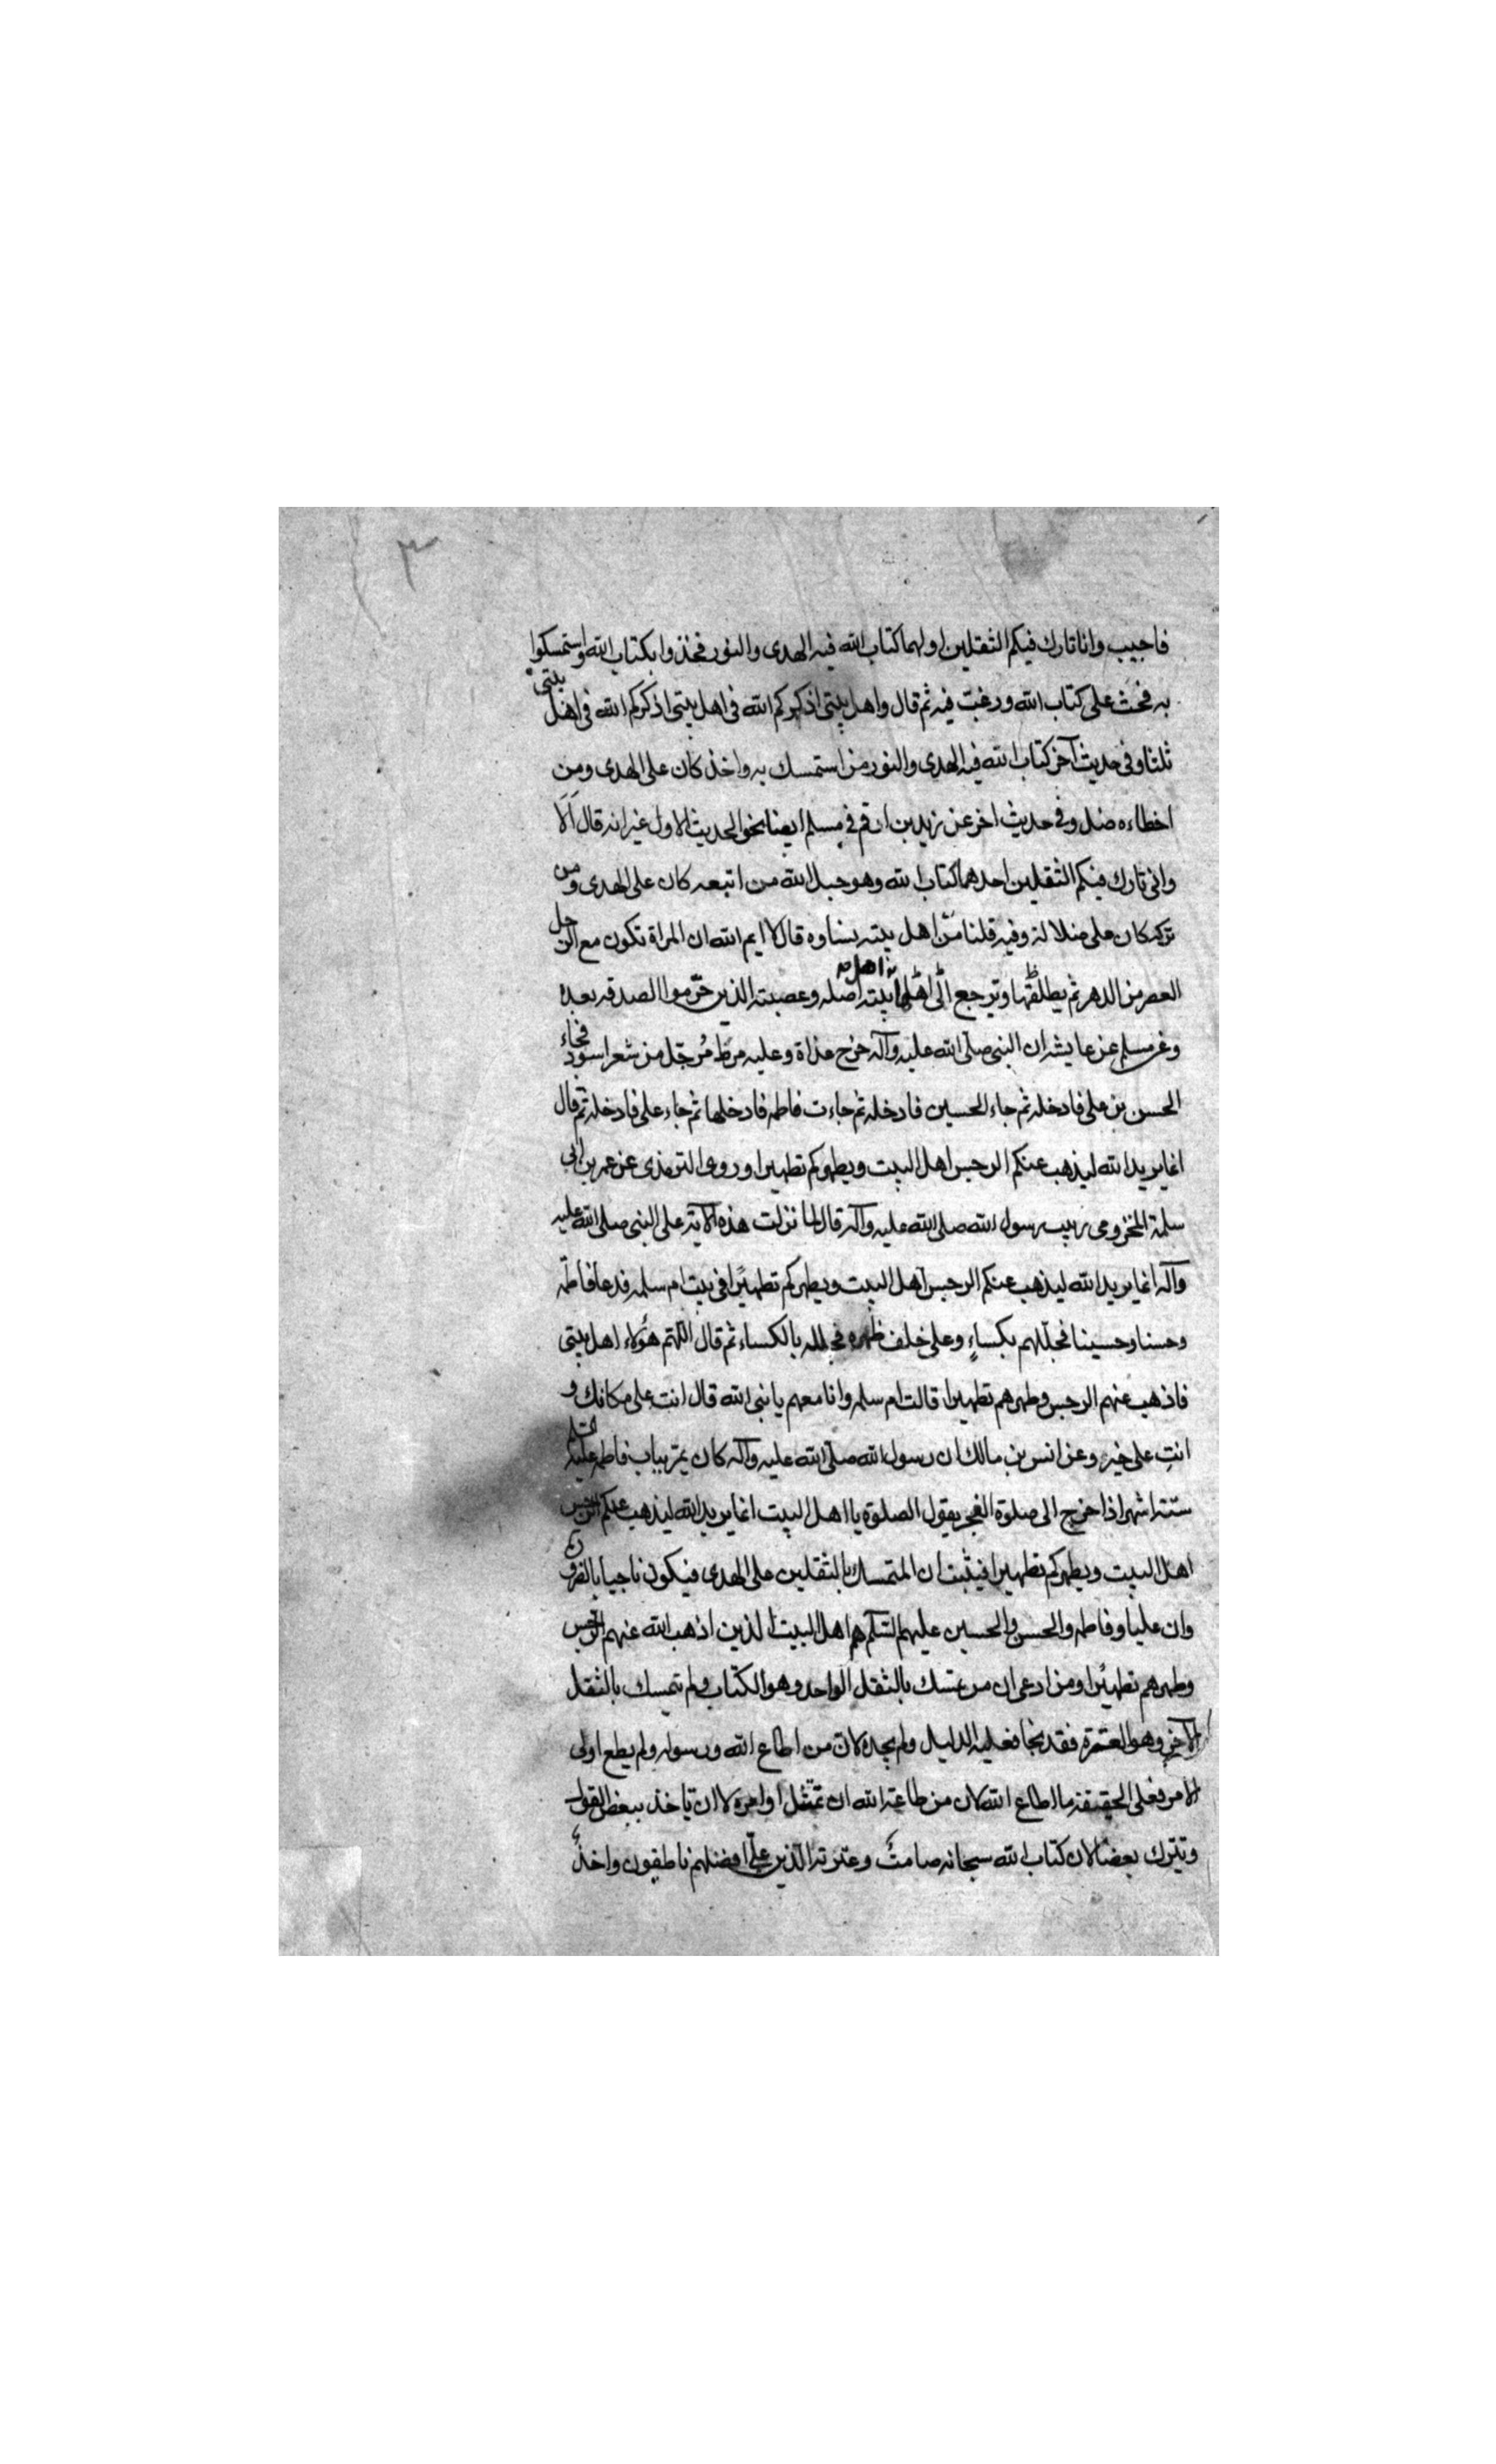 ٣
فاجيب وانا تارك فيكم الثقلين اولهما كتاب الله فيه الهدى والنور فخذوا بكتاب الله واستمسكوا
به فحث على كتاب الله ورغبت فيه ثم قال واهل بيتى اذكركم الله فى اهل بيتى اذكركم الله فى اهل بيتى
ثلثا وفى حديث آخر كتاب الله فيه الهدى والنور من استمسك به واخذ كان على الهدى ومن
اخطاءه ضل وفى حديث اخر عن زيد بن ارقم فى مسلم ايضا بنحو الحديث الاول غير انه قال الا
وانى تارك فيكم الثقلين احدهما كتاب الله وهو حبل الله من اتبعه كان على الهدى ومن
تركه كان على ضلالة وفيه قلنا من اهل بيته نساوه قال لا ايم الله ان المراة تكون مع الرجل
العصر من الدهر ثم يطلقها وترجع الى اهلها اهل بيته اصله وعصبته الذين حرموا الصدقه بعده
وعن مسلم عن عايشه ان النبى صلى الله عليه وآله خرج غداة وعليه مرط مُرجّل من شعر اسود فجاء
الحسن بن على فادخله ثم جاء الحسين فادخله ثم جاءت فاطمه فادخلها ثم جاء على فادخله ثم قال
انما يريد الله ليذهب عنكم الرجس اهل البيت ويطهركم تطهيرا وروى الترمذى عن عمر بن ابى
سلمة المخزومى ربيب رسول الله صلى الله عليه وآله قال لما نزلت هذه الآية على النبى صلى الله عليه
وآله انما يريد الله ليذهب عنكم الرجس اهل البيت ويطهركم تطهيرًا فى بيت ام سلمه فدعا فاطمه
وحسنا وحسينا فجلّلهم بكساءٍ وعلى خلف ظهره فجلله بالكساء ثم قال اللهمّ هؤلاء اهل بيتى
فاذهب عنهم الرجس وطهرهم تطهيرا قالت ام سلمه وانا معهم يا نبى الله قال انت على مكانك و
انتِ على خير وعن انس بن مالك ان رسول الله صلى الله عليه وآله كان يمرّ بباب فاطمه عليها السلم
ستّة اشهر اذا خرج الى صلوة الفجر يقول الصلوة يا اهل البيت انما يريد الله ليذهب عنكم الرجس
اهل البيت ويطهركم تطهيرا فيثبت ان المتمسك بالثقلين على الهدى فيكون ناجيا بالضرورة
وان عليا وفاطمه والحسن والحسين عليهم السّلم هم اهل البيت الذين اذهب الله عنهم الرجس
وطهرهم تطهيرًا ومن ادعى ان من تمسك بالثقل الواحد وهو الكتاب ولم يتمسك بالثقل
الآخر وهو العترة فقد نجا فعليه الدليل ولم يجده لانّ من اطاع الله ورسوله ولم يطع اولى
الامر فعلى الحقيقة ما اطاع الله لان من طاعة الله ان تمتثل اوامره لا ان تاخذ ببعض القول
وتترك بعضا لان كتاب الله سبحانه صامتٌ وعترته الّذين علىّ افضلهم ناطقون واخذُ